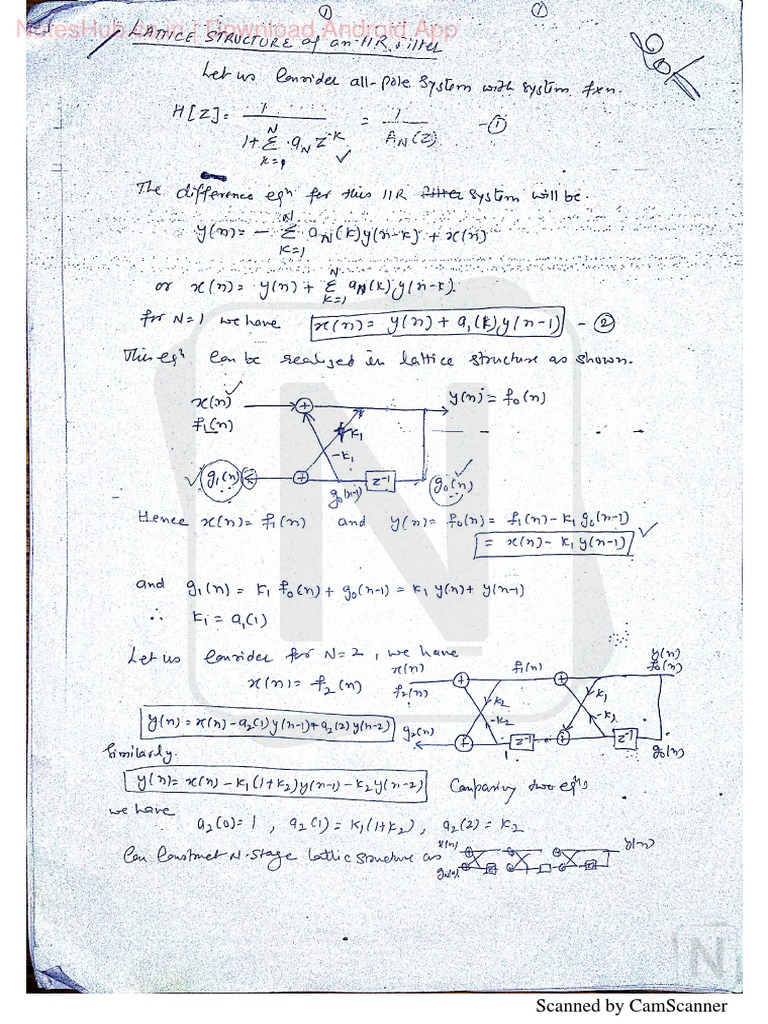 ① ①
NotesHub.co.in | Download Android App
LATTICE STRUCTURE of an IIR filter
Let us Consider all-pole System with system fxn.
H[Z]= 1 / 1+ Σ N k=1 aN z^-k = 1 / AN(Z) -①
The difference eqn for this IIR Filter System will be.
y(n)= - Σ N K=1 aN(k)y(n-k) + x(n)
or x(n)= y(n)+ Σ N K=1 aN(k)y(n-k).
for N=1 we have x(n)= y(n)+a1(k)y(n-1) -②
This eqn Can be realized in lattice structure as shown.
x(n) + y(n)=f0(n)
f1(n) K1
-K1
g1(n) + z-1 g0(n)
g0(n-1)
Hence x(n)= f1(n) and y(n)= f0(n)= f1(n)-K1 g0(n-1)
= x(n)- K1 y(n-1)
and g1(n)= K1 f0(n)+ g0(n-1)= K1 y(n)+ y(n-1)
∴ K1 = a1(1)
Let us Consider for N=2, we have
x(n)= f2(n)
x(n) f1(n) y(n)
f2(n) + + f0(n)
K2 K1
-K2 -K1
g2(n) + z-1 + z-1 g0(n)
y(n)=x(n)-a2(1)y(n-1)+a2(2)y(n-2)
Similarly.
y(n)= x(n)-K1(1+K2)y(n-1)-K2y(n-2) Comparing two eqns
we have
a2(0)=1, a2(1)=K1(1+K2), a2(2)=K2
Can Construct N-stage lattice structure as x(n) y(n)
N
Scanned by CamScanner